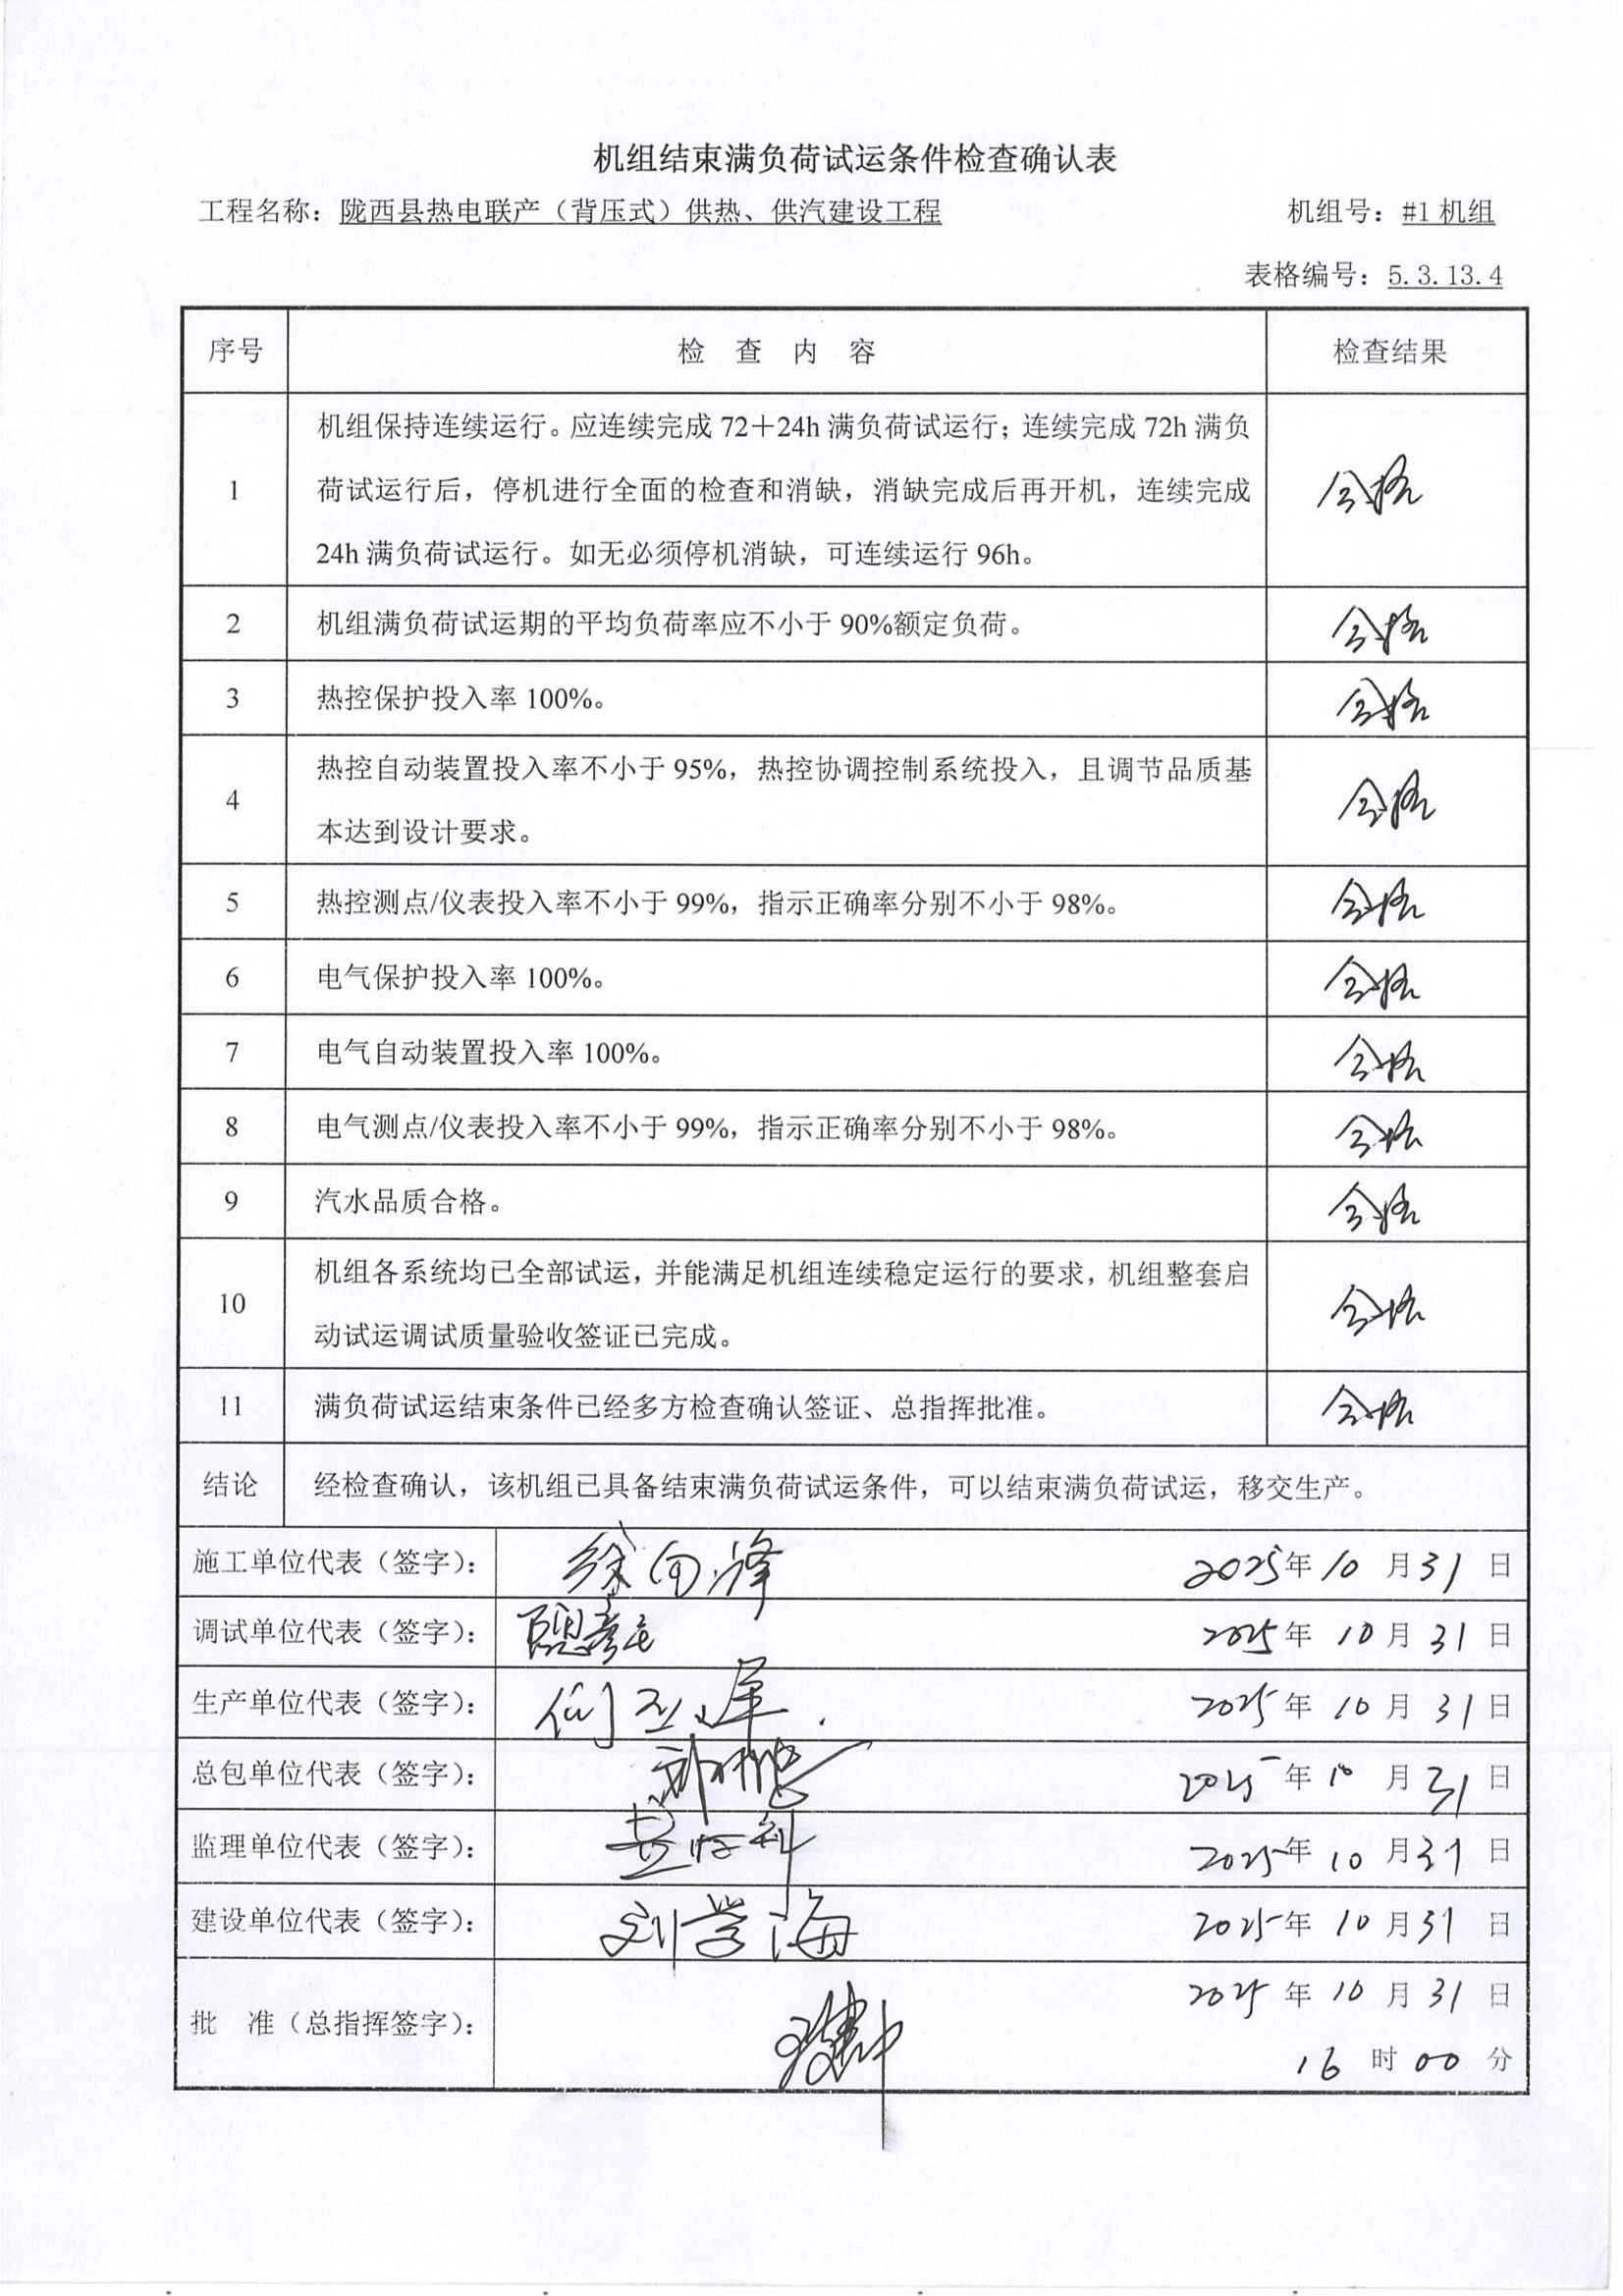 机组结束满负荷试运条件检查确认表
工程名称：陇西县热电联产（背压式）供热、供汽建设工程 机组号：#1 机组
表格编号：5.3.13.4
序号 检 查 内 容 检查结果
机组保持连续运行。应连续完成 72＋24h 满负荷试运行；连续完成 72h 满负
1 荷试运行后，停机进行全面的检查和消缺，消缺完成后再开机，连续完成 合格
24h 满负荷试运行。如无必须停机消缺，可连续运行 96h。
2 机组满负荷试运期的平均负荷率应不小于 90%额定负荷。 合格
3 热控保护投入率 100%。 合格
热控自动装置投入率不小于 95%，热控协调控制系统投入，且调节品质基
4 合格
本达到设计要求。
5 热控测点/仪表投入率不小于 99%，指示正确率分别不小于 98%。 合格
6 电气保护投入率 100%。 合格
7 电气自动装置投入率 100%。 合格
8 电气测点/仪表投入率不小于 99%，指示正确率分别不小于 98%。 合格
9 汽水品质合格。 合格
机组各系统均已全部试运，并能满足机组连续稳定运行的要求，机组整套启
10 合格
动试运调试质量验收签证已完成。
11 满负荷试运结束条件已经多方检查确认签证、总指挥批准。 合格
结论 经检查确认，该机组已具备结束满负荷试运条件，可以结束满负荷试运，移交生产。
施工单位代表（签字）： 2025年 10 月 31 日
调试单位代表（签字）： 2025年 10 月 31 日
生产单位代表（签字）： 2025年 10 月 31 日
总包单位代表（签字）： 2025年 10 月 31 日
监理单位代表（签字）： 2025年 10 月 31 日
建设单位代表（签字）： 刘学海 2025年 10 月 31 日
2025 年 10 月 31 日
批 准（总指挥签字）：
16 时 00 分